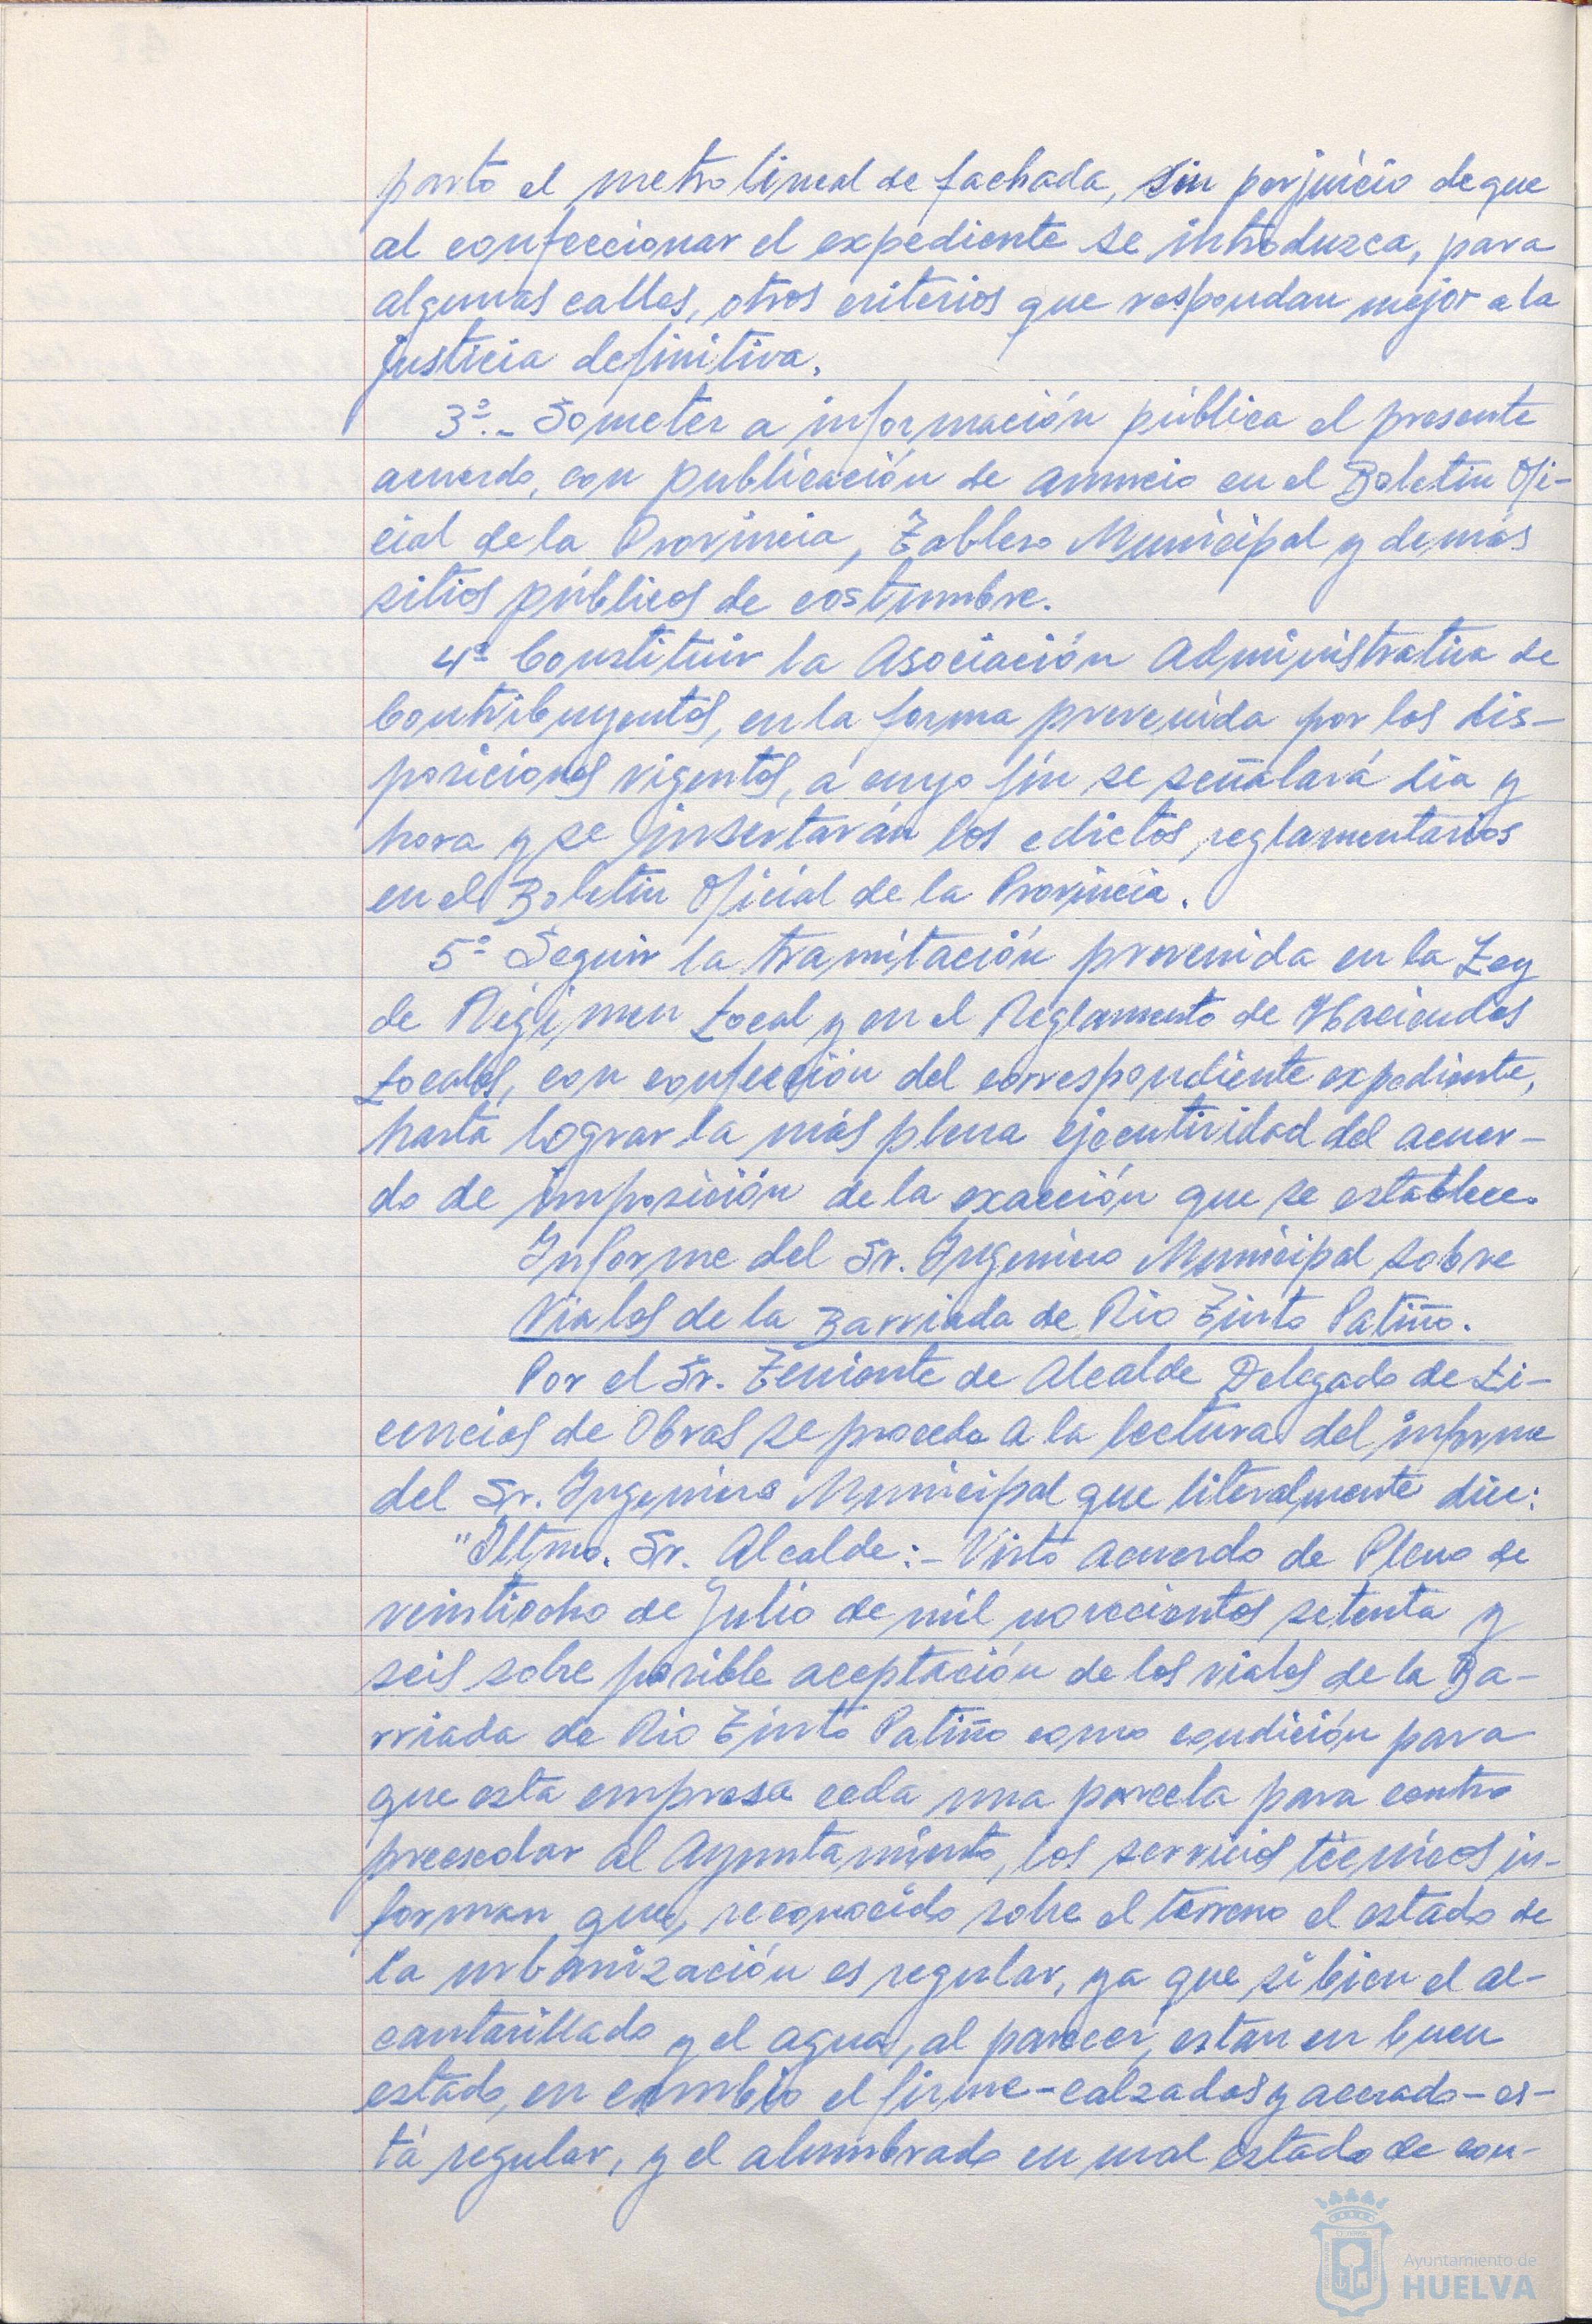 parto el metro lineal de fachada, sin perjuicio de que
al confeccionar el expediente se introduzca, para
algunas calles, otros criterios que respondan mejor a la
justicia definitiva.
3º.- Someter a información pública el presente
acuerdo, con publicación de anuncio en el Boletin Ofi-
cial de la Provincia, Tablero Municipal y demás
sitios públicos de costumbre.
4º Constituir la Asociación Administrativa de
Contribuyentes, en la forma prevenida por las dis-
posiciones vigentes, a cuyo fín se señalará dia y
hora y se insertarán los edictos reglamentarios
en el Boletin Oficial de la Provincia.
5º Seguir la tramitación prevenida en la Ley
de Régimen Local y en el Reglamento de Haciendas
Locales, con confección del correspondiente expediente,
hasta lograr la más plena ejecutividad del acuer-
do de imposición de la exacción que se establece.
Informe del Sr. Ingeniero Municipal sobre
Viales de la Barriada de Rio Tinto Patiño.
Por el Sr. Teniente de Alcalde Delegado de Li-
cencias de Obras se procede a la lectura del informe
del Sr. Ingeniero Municipal que literalmente dice:
"Iltmo. Sr. Alcalde:- Visto acuerdo de Pleno de
veintiocho de Julio de mil novecientos setenta y
seis sobre posible aceptación de los viales de la Ba-
rriada de Rio Tinto Patiño como condición para
que esta empresa ceda una parcela para centro
preescolar al Ayuntamiento, los servicios técnicos in-
forman que, reconocido sobre el terreno el estado de
la urbanización es regular, ya que si bien el al-
cantarillado y el agua, al parecer, estan en buen
estado, en cambio el firme-calzadas y acerado-es-
tá regular, y el alumbrado en mal estado de con-
Ayuntamiento de
HUELVA